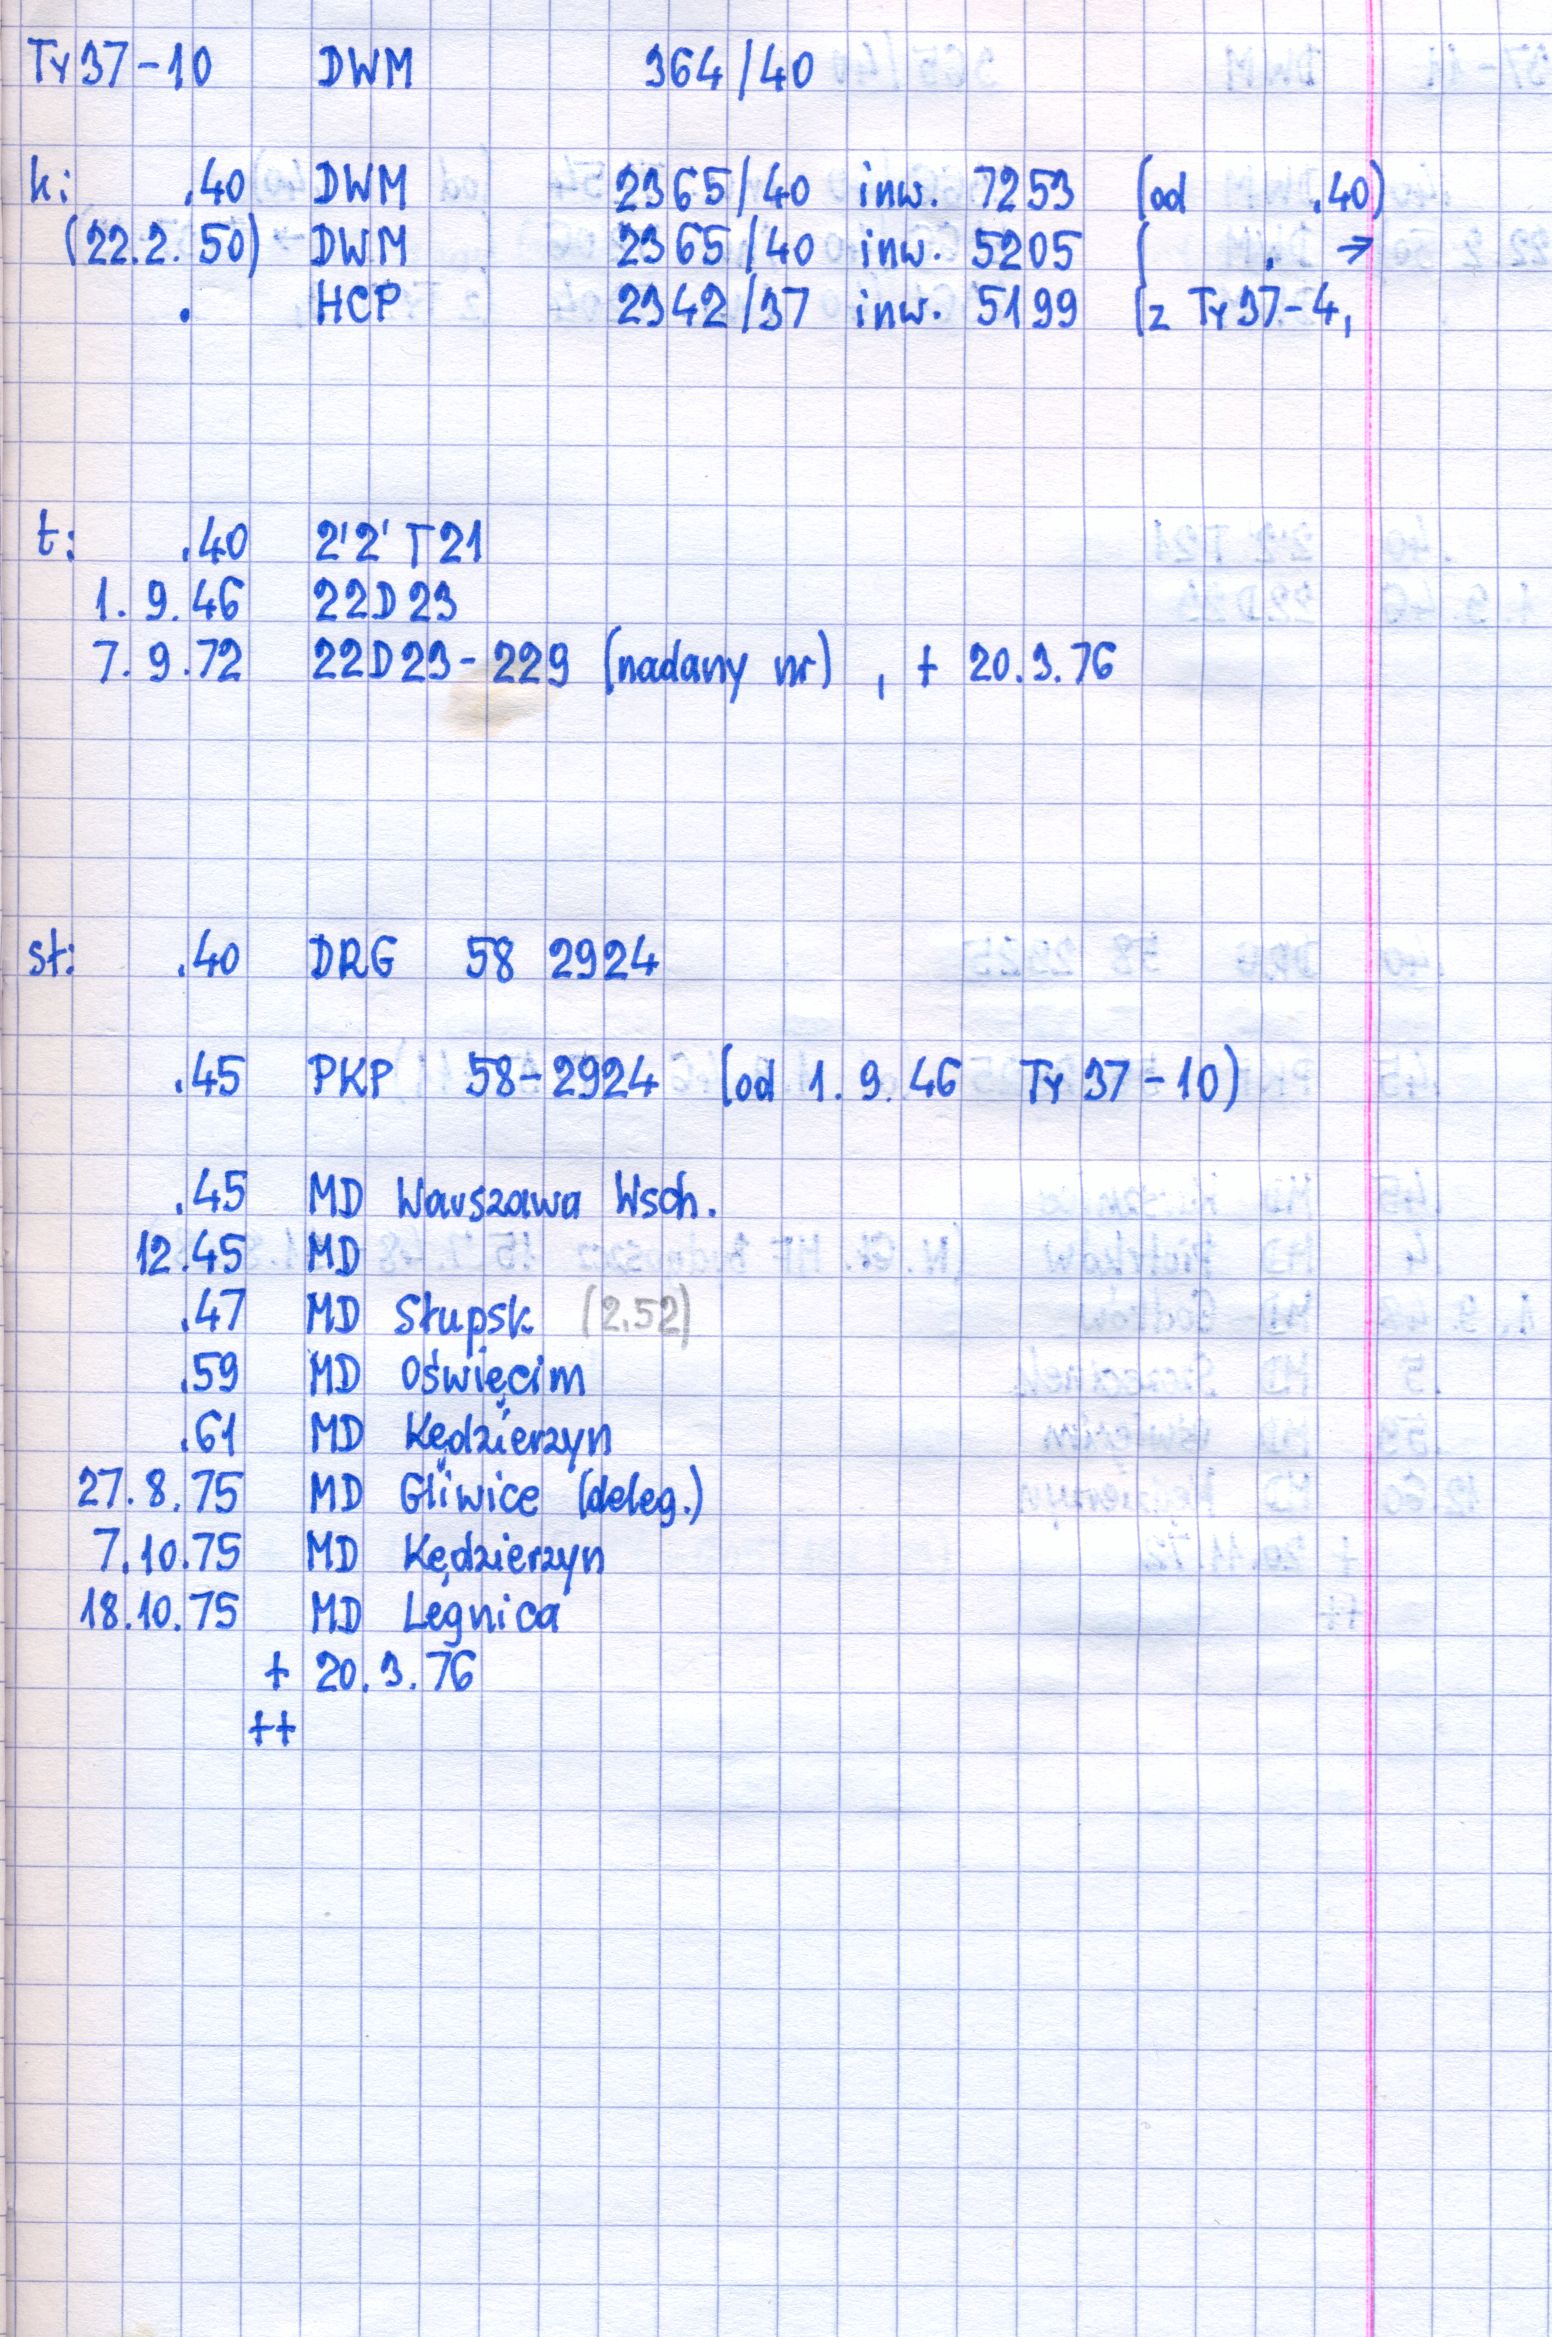 Ty37-10 DWM 364/40
k: .40 DWM 2365/40 inw. 7253 (od .40)
(22.2.50) DWM 2365/40 inw. 5205 ( . →
. HCP 2342/37 inw. 5199 (z Ty37-4,
t: .40 2'2'T21
1.9.46 22D23
7.9.72 22D23-229 (nadany nr) , + 20.3.76
st: .40 DRG 58 2924
.45 PKP 58-2924 (od 1.9.46 Ty37-10)
.45 MD Warszawa Wsch.
12.45 MD
.47 MD Słupsk (2.52)
.59 MD Oświęcim
.61 MD Kędzierzyn
27.8.75 MD Gliwice (deleg.)
7.10.75 MD Kędzierzyn
18.10.75 MD Legnica
+ 20.3.76
++